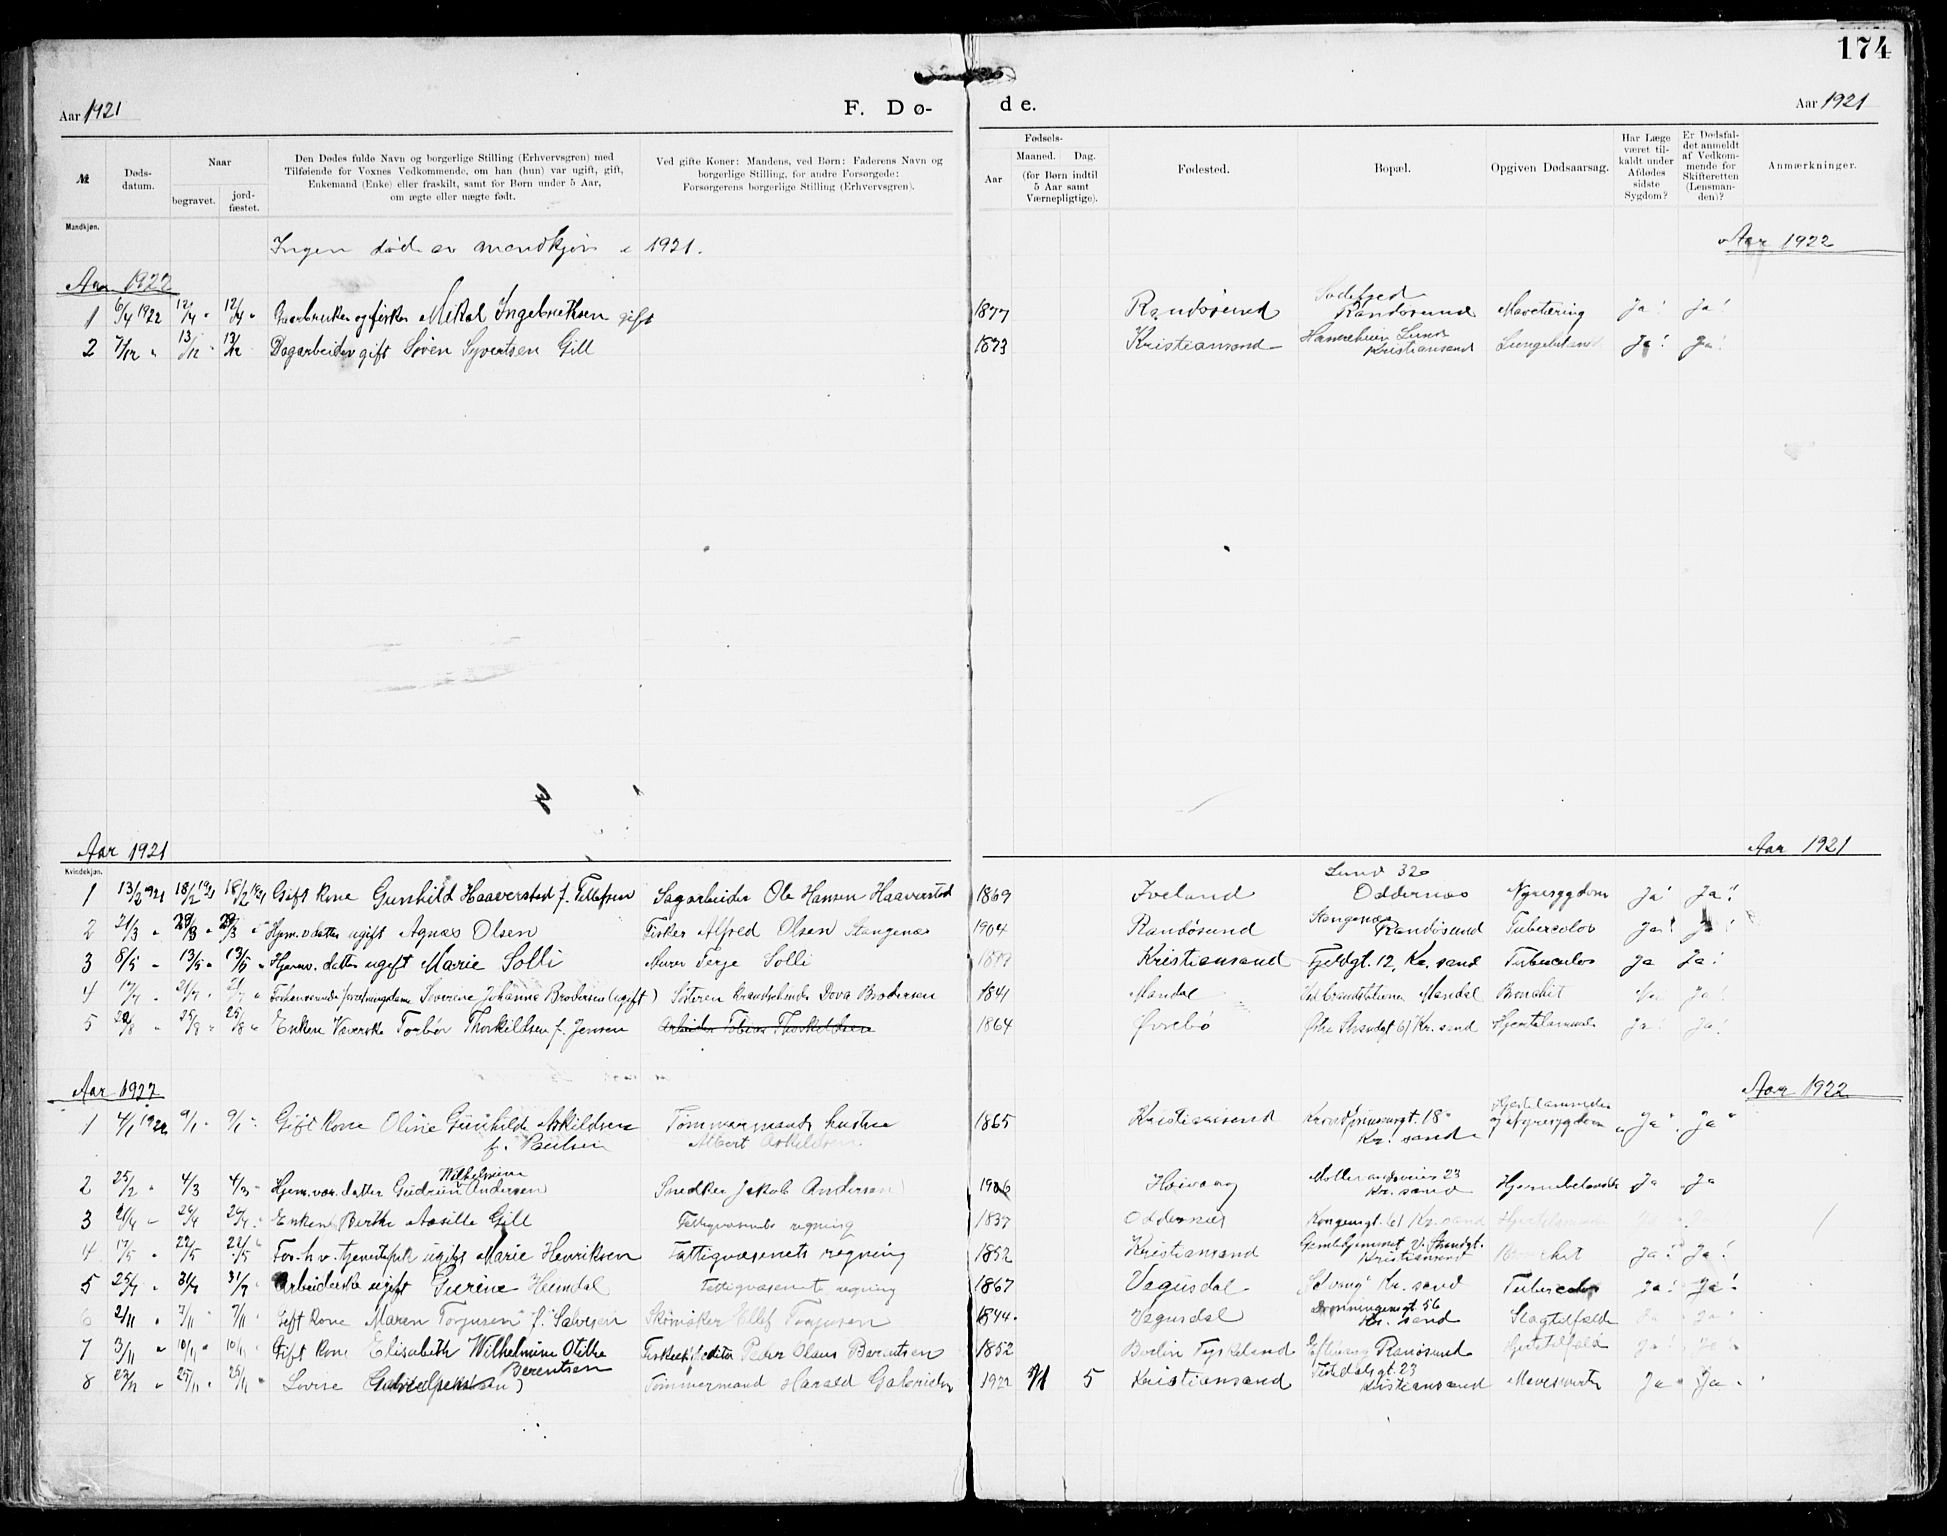 174
Aar 1921 F. Dø- de. Aar 1921
№
Døds-datum.
Naar
begravet.
jord-fæstet.
Den Dødes fulde Navn og borgerlige Stilling (Erhvervsgren) med
Tilføiende for Voxnes Vedkommende, om han (hun) var ugift, gift,
Enkemand (Enke) eller fraskilt, samt for Børn under 5 Aar,
om ægte eller uægte født.
Ved gifte Koner: Mandens, ved Børn: Faderens Navn og
borgerlige Stilling, for andre Forsørgede:
Forsørgerens borgerlige Stilling (Erhvervsgren).
Fødsels-
Aar
Maaned. Dag.
(for Børn indtil
5 Aar samt
Værnepligtige).
Fødested.
Bopæl.
Opgiven Dødsaarsag.
Har Læge
været til-
kaldt under
Afdødes
sidste
Sygdom?
Er Dødsfal-
det anmeldt
af Vedkom-
mende for
Skifteretten
(Lensman-
den)?
Anmærkninger.
Mandkjøn.
Ingen død av mandkjøn i 1921.
Aar 1922 Aar 1922
1 6/4 1922 12/4 " 12/4 " Gaarbruker og fisker Mikal Ingebrethsen gift 1877 Randøsund Randøsund Mavetæring Ja! Ja!
2 7/12 " 13/12 13/12 Dagarbeider gift Søren Syvertsen Gill 1873 Kristiansand Lund Kristiansand Ja! Ja!
Aar 1921 Aar 1921
Kvindekjøn.
1 13/2 1921 18/2 1921 18/2 1921 Gift Kone Gunhild Haaverstad f. Tellefsen Sagarbeider Ole Hansen Haaverstad 1869 Iveland Lund 320 Oddernes Nyresygdom Ja! Ja!
2 21/3 " 29/3 " 29/3 " Hjem.v. datter ugift Agnæs Olsen Fisker Alfred Olsen Stangenæs 1904 Randøsund Stangenæs Randøsund Tubercolos Ja! Ja!
3 8/5 " 13/5 " 13/5 " Hjemv. datter ugift Marie Solli Murer Terje Solli Kristiansand Fjeldgt. 12, Kr. sand Tuberculos Ja Ja!
4 Severine Johanne Brodersen (ugift) Søsteren Dova Brodersen 1841 Mandal Mandal Bronchit Nei Ja!
5 22/8 " 25/8 " 25/8 " Enken Torbør Thorkildsen f. Jensen Arbeider Tobias Thorkildsen 1864 Øvrebø Østre Strandgt 61 Kr. sand Hjertelammelse Ja! Ja!
Aar 1922 Aar 1922
1 4/1 1922 9/1 " 9/1 " Gift Kone Oline Gunhilde Askildsen f. Paulsen Tømmermands hustru Albert Askildsen 1865 Kristiansand Kronprinsensgt. 18 Kr. sand Hjertelammelse og Nyresygdom Ja " Ja "
2 25/2 " 4/3 4/3 " Hjem.vær. datter Gudrun Wilhelmine Andersen Snedker Jakob Andersen 1906 Høivaag 23 Kr. sand Hjernebetændelse Ja Ja
3 21/4 " 26/4 26/4 " Enken Berthe Aasille Gill Fattigvæsenets regning 1837 Oddernes Kongensgt. 61 Kr. sand
4 17/5 " 22/5 22/5 " ugift Marie Henriksen Fattigvæsenets regning 1852 Kristiansand Gamlehjemmet V. Strandgt. Kristiansand Ja! Ja!
5 25/7 " 31/7 31/7 " Arbeiderske ugift Gurine Heimdal Fattigvæsenets regning 1867 Vegusdal Kr. sand Tubercolos Ja! Ja!
6 2/11 " 7/11 " 7/11 " Gift Kone Maren Torjusen f. Salvesen Skomaker Ellef Torjusen 1844. Vegusdal Dronningensgt 56 Kr. sand Slagtilfælde Ja Ja
7 3/11 " 10/11 " 10/11 " Gift Kone Elisabeth Wilhelmine Otilie Berentsen Peder Olaus Berentsen 1852 Tyskland Randøsund Hjertetilfæld Ja! Ja!
8 22/11 " 25/11 " 25/11 " Lovise Gabrielsen Tømmermand Harald Gabrielsen 1922 5 Kristiansand 23 Kristiansand Ja " Ja "